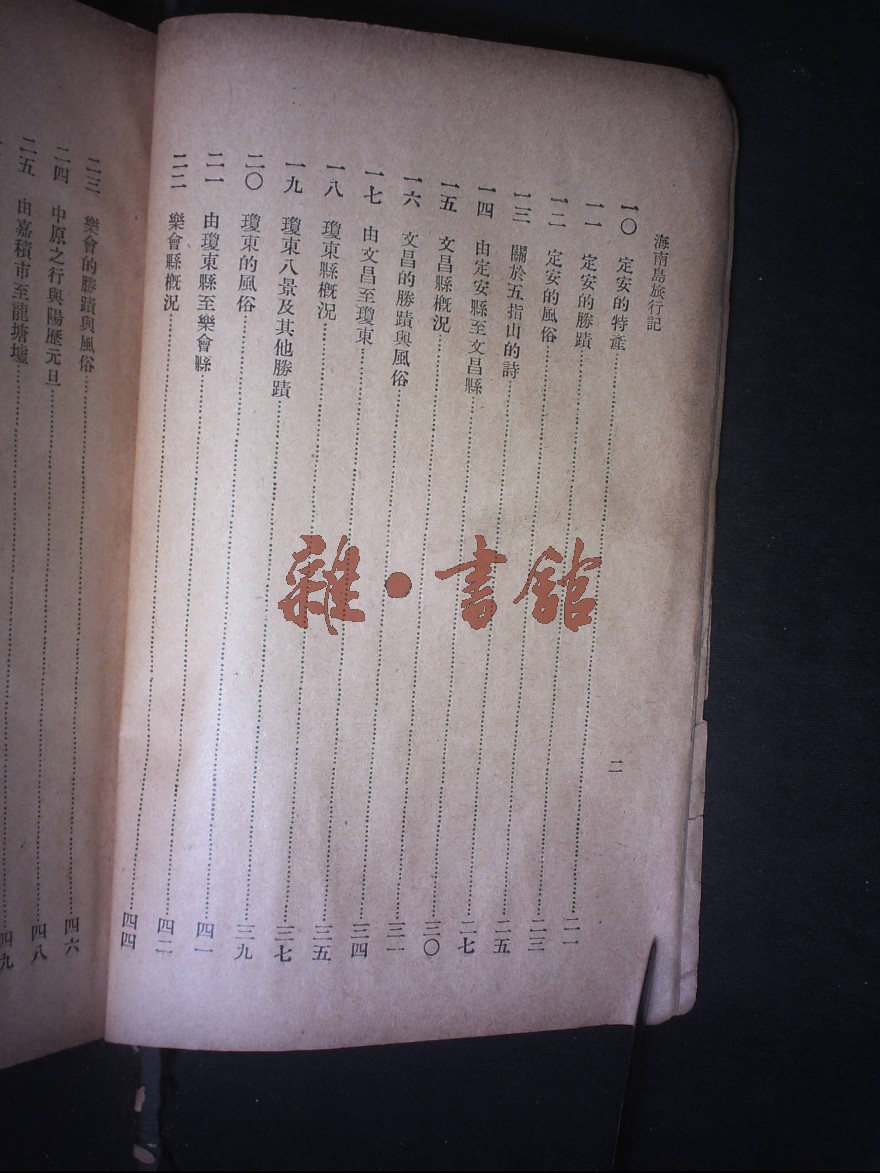 海南島旅行記
二
一〇 定安的特產……二一
一一 定安的勝蹟……二三
一二 定安的風俗……二五
一三 關於五指山的詩……二七
一四 由定安縣至文昌縣……三〇
一五 文昌縣概況……三一
一六 文昌的勝蹟與風俗……三四
一七 由文昌至瓊東……三五
一八 瓊東縣概況……三七
一九 瓊東八景及其他勝蹟……三九
二〇 瓊東的風俗……四一
二一 由瓊東縣至樂會縣……四二
二二 樂會縣概況……四四
二三 樂會的勝蹟與風俗……四六
二四 中原之行與陽歷元旦……四八
二五 由嘉積市至龍塘墟……四九
雜·書館